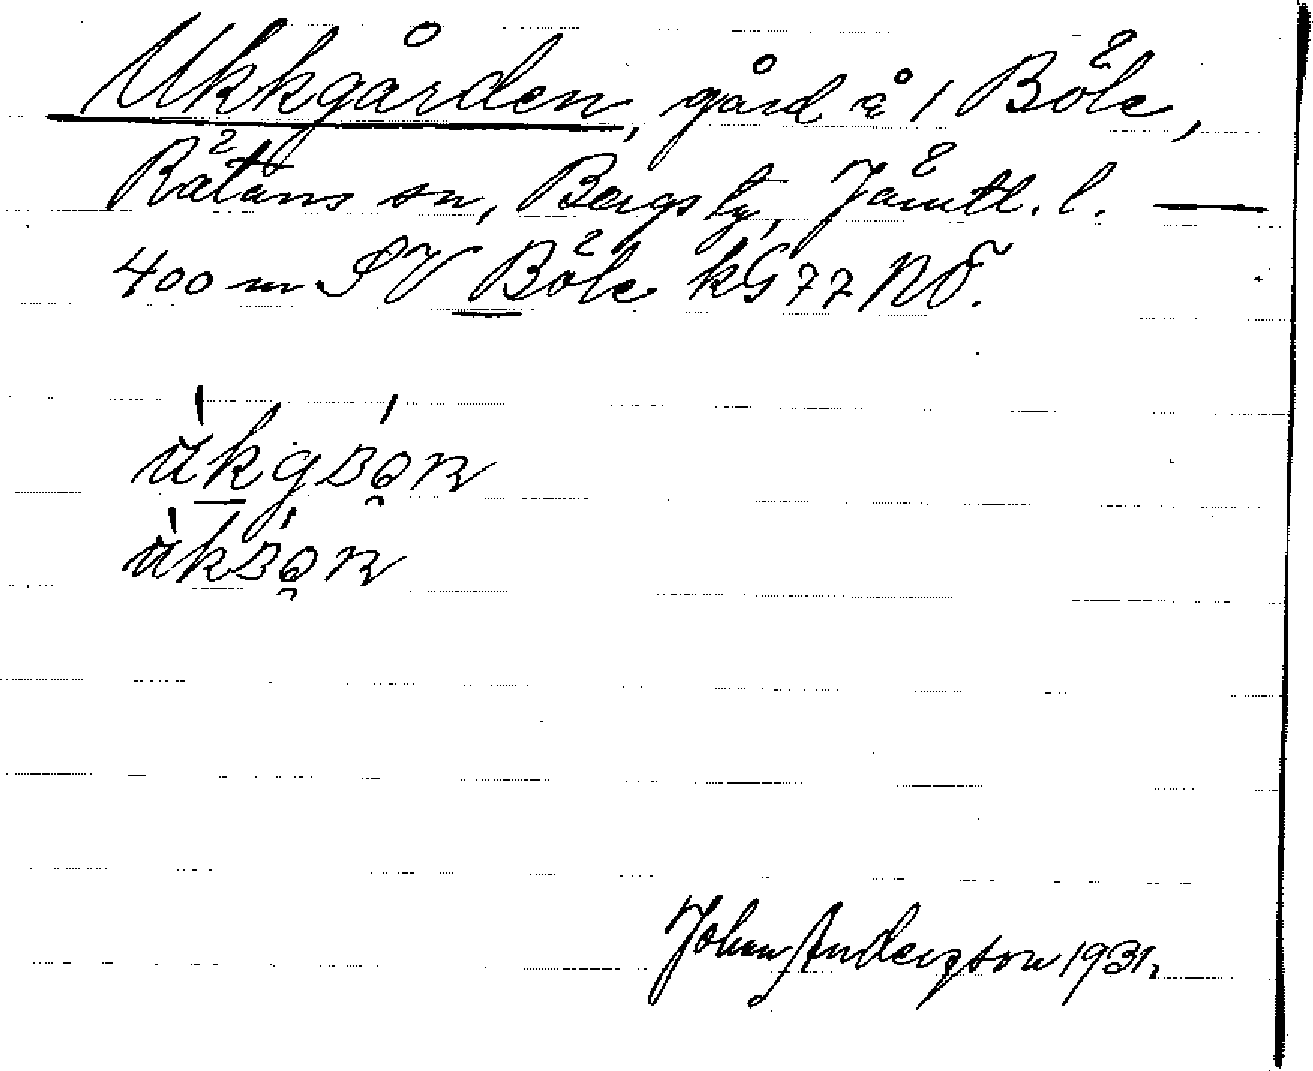 Ukkgården, gård å 1 Böle,
Rätans sn, Bergs tg, Jämtl. l. —
400 m SV Böle kG 77 NO.
Johan Anderzson 1931.